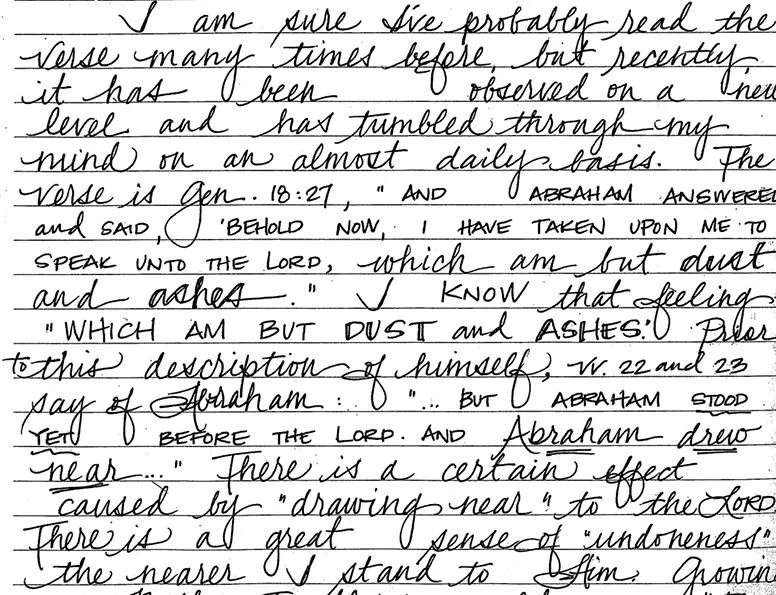 I am sure I've probably read the
verse many times before, but recently
it has been observed on a new
level and has tumbled through my
mind on an almost daily basis. The
verse is Gen. 18:27, "AND ABRAHAM ANSWERED
and SAID, 'BEHOLD NOW, I HAVE TAKEN UPON ME TO
SPEAK UNTO THE LORD, which am but dust
and ashes." I KNOW that feeling
"WHICH AM BUT DUST and ASHES." Prior
to this description of himself, vv. 22 and 23
say of Abraham: "... BUT ABRAHAM STOOD
YET BEFORE THE LORD. AND Abraham drew
near..." There is a certain effect
caused by "drawing near" to the LORD
There is a great sense of "undoneness"
the nearer I stand to Him. Growin